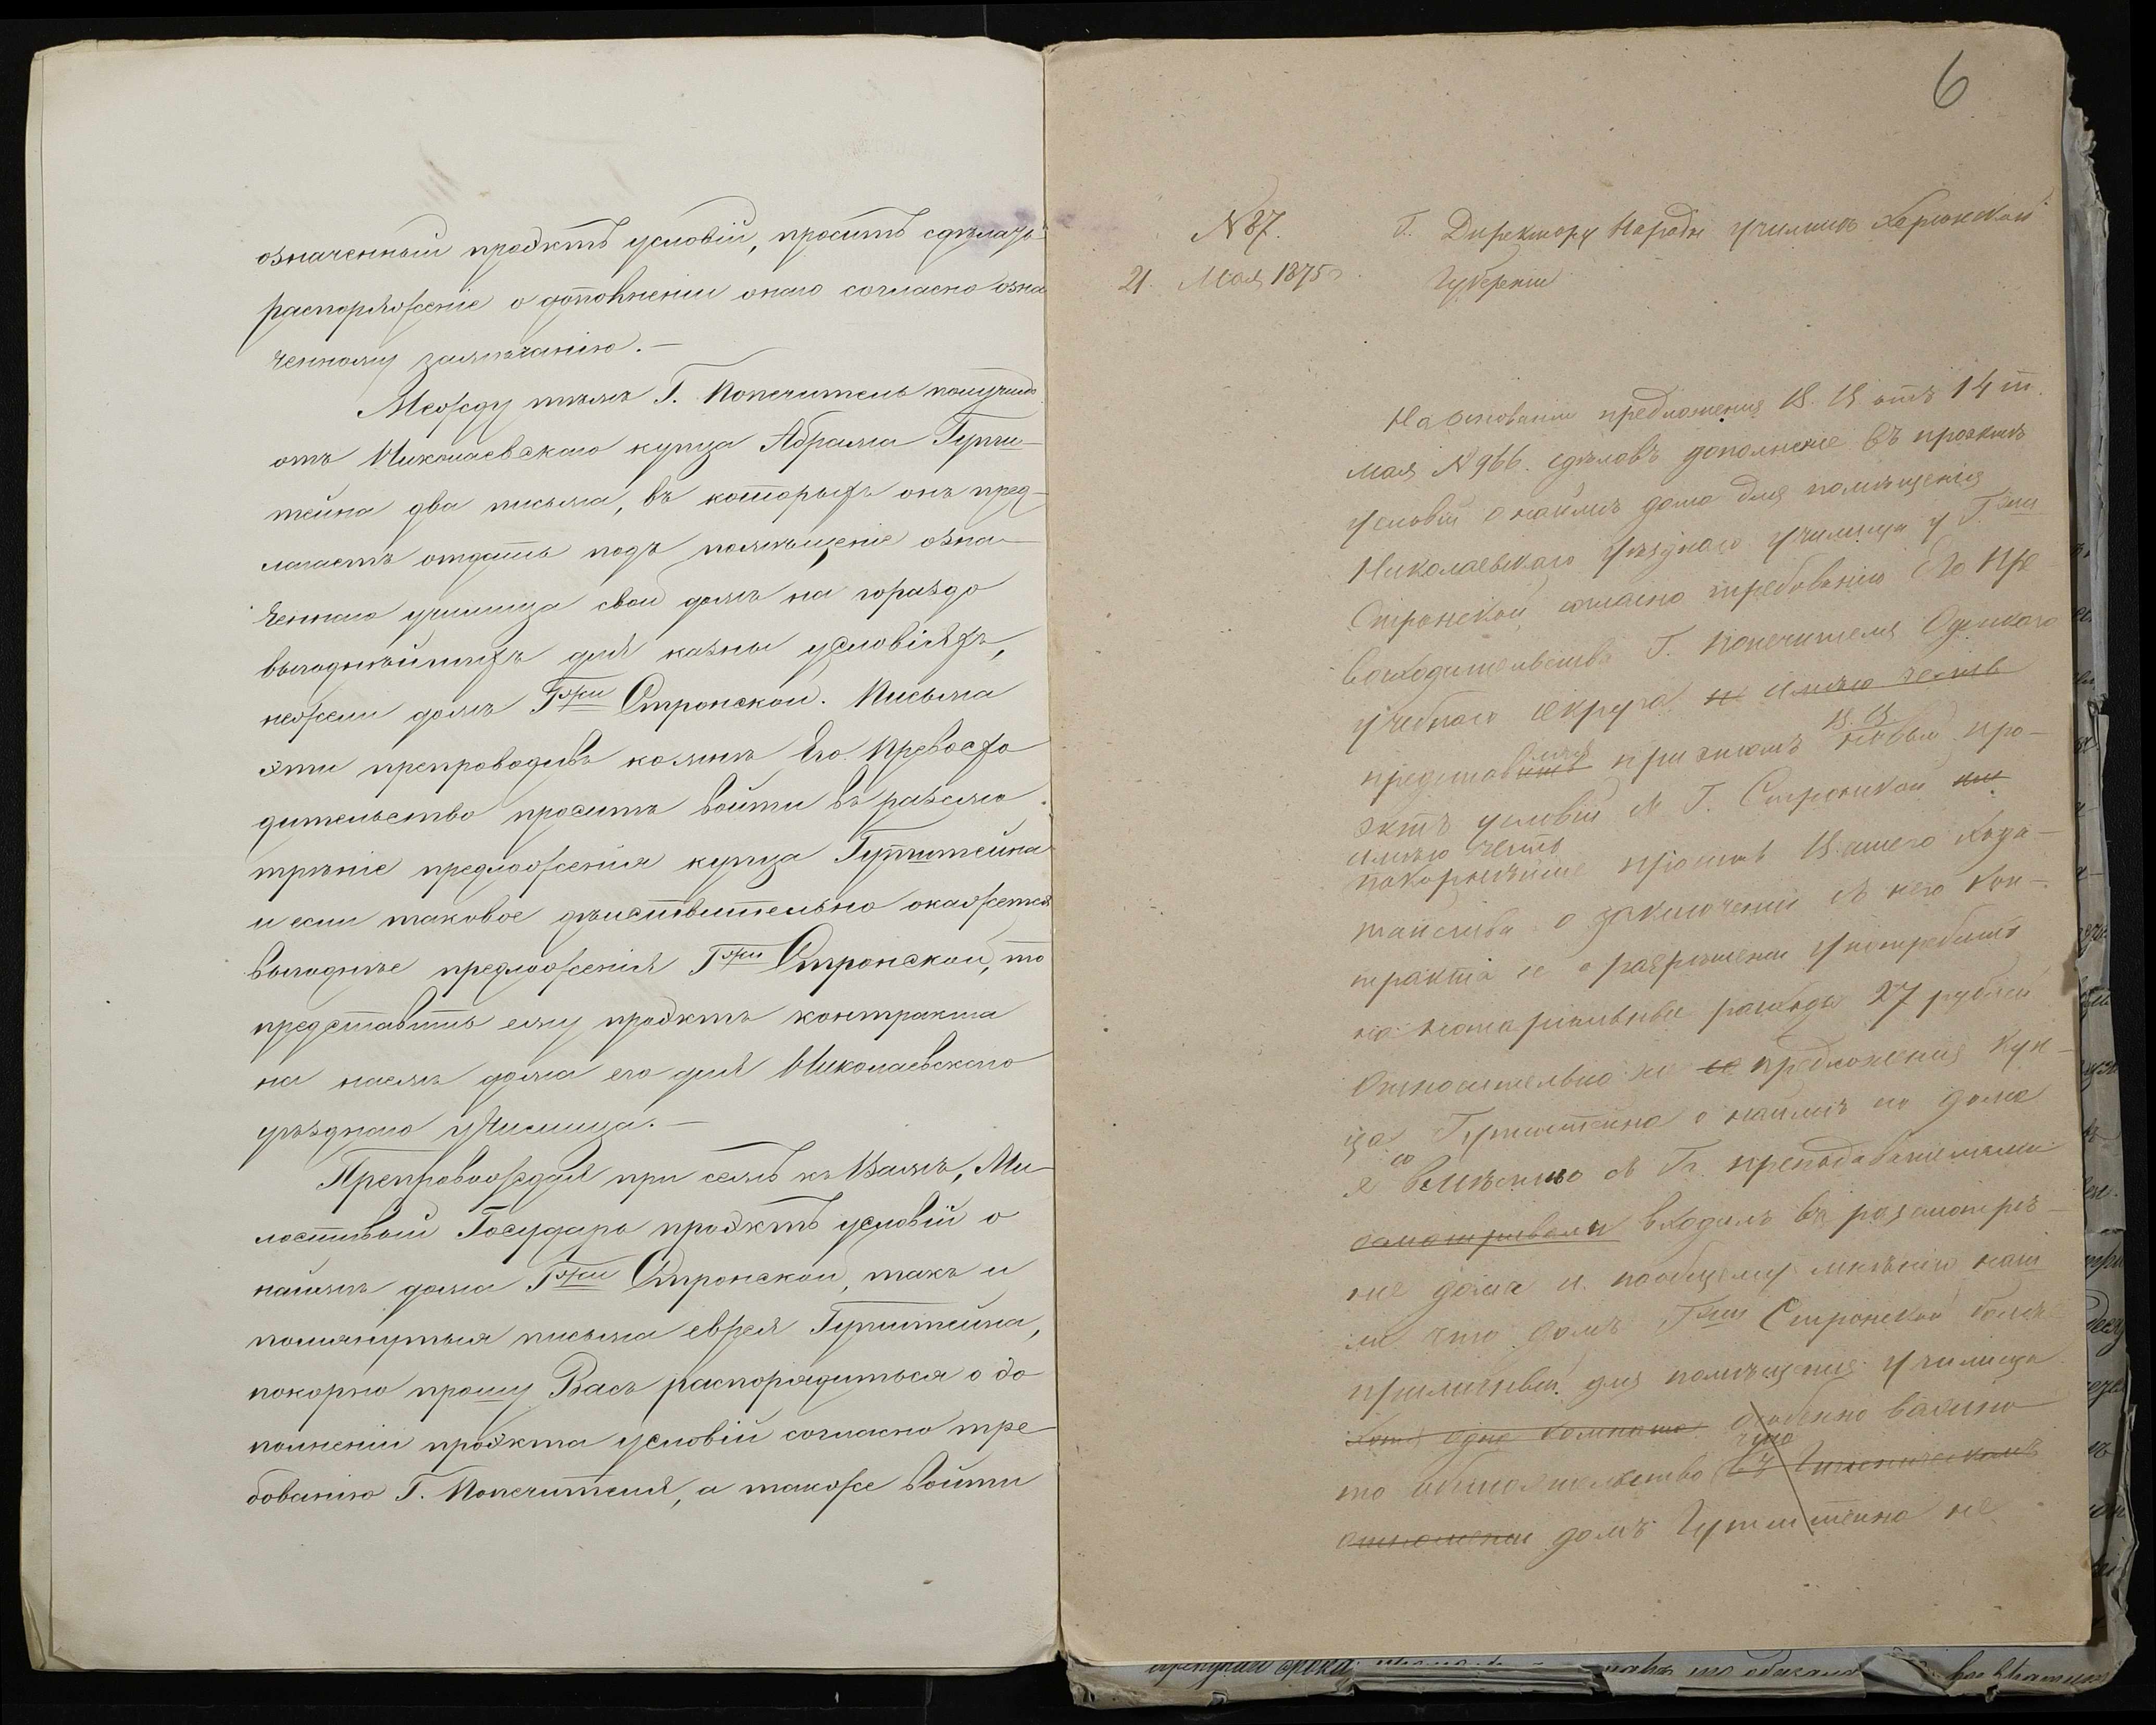 означенный проэктъ условій, проситъ сдѣлать
распоряженіе о дополненіи онаго согласно озна
ченному замѣчанію.—
Между тѣмъ Г. Попечитель получилъ
отъ Николаевскаго купца Абрама Гурш-
тейна два письма, въ которыхъ онъ пред-
лагаетъ отдать подъ помѣщеніе озна-
ченнаго училища свой домъ на гораздо
выгоднѣйшихъ для казны условіяхъ,
нежели домъ Гжи Стронской. Письма
эти препроводивъ ко мнѣ Его Превосхо
дительство проситъ войти въ разсмо
трѣніе предложенія купца Гурштейна
и если таковое дѣйствительно окажется
выгоднѣе предложенія Гжи Стронской, то
представить ему проэктъ контракта
на наемъ дома его для Николаевскаго
уѣзднаго училища.—
Препровождая при семъ къ Вамъ, Ми-
лостивый Государь проэктъ условій о
наймѣ дома Гжи Стронской, такъ и
помянутыя письма еврея Гурштейна,
покорно прошу Васъ распорядиться о до
полненіи проэкта условій согласно тре-
бованію Г. Попечителя, а также войти
6
N 87.
21. Мая 1875
Г. Директору Народн училищъ Херсонской
Губерніи
На основаніи предложенія В. В. отъ 14 т.
мая N 966. сдѣлавъ дополненіе въ проэктѣ
условій о наймѣ дома для помѣщенія
Николаевскаго уѣзднаго училища у Гжи
Стронской согласно требованію Его Пре
восходительства Г. Попечителя Одесскаго
учебнаго округа не имѣю честь
представить при этомъ В. В. новый про-
эктъ условій съ Г. Стронской
имѣю честь
покорнѣйше просить Вашего Хода-
тайства о заключеніи съ него кон-
тракта и о разрѣшеніи употребить
на нотаріальные расходы 27 рублей
Относительно же предложенія куп-
ца Гурштейна о наймѣ его дома
я вмѣстѣ со Гг. преподавателями
осматривали входилъ въ разсмотрѣ-
ніе дома и по общему мнѣнію наш
ли что домъ Гжи Стронской болѣе
приличный для помѣщенія училища
хотя одна комната особенно важно
то обстоятельство что въ Гигіеническомъ
отношеніи домъ Гурштейна не